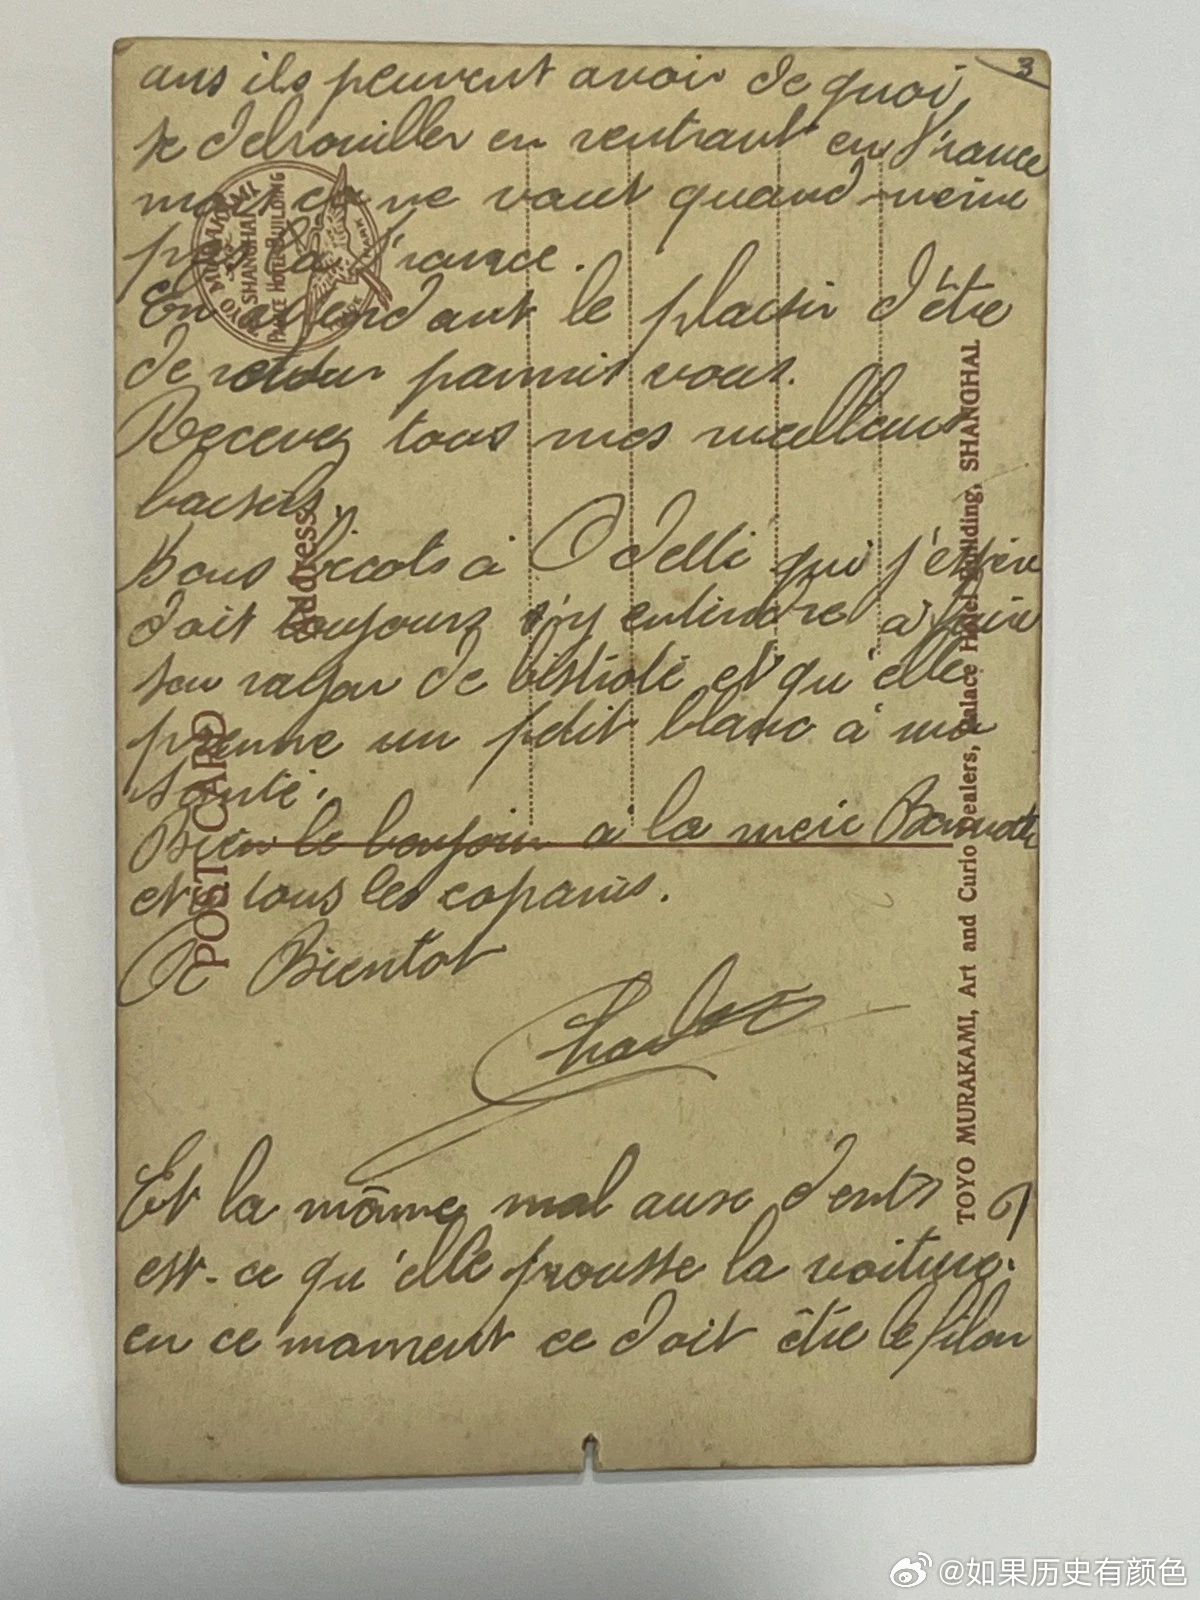 3
ans ils peuvent avoir de quoi
se debrouiller en rentrant en France
mais ça ne vaut quand meme
pas la France.
En attendant le plaisir d'être
de retour parmis vous.
Recevez tous mes meilleurs
baisers.
Bons bécots à Odette qui j'espère
doit toujours s'y entendre à faire
son de et qu'elle
prenne un petit blanc à ma
santé.
Bien le bonjour à la mère
et tous les copains.
A Bientot
Et la môme mal aux dents
est-ce qu'elle pousse la voiture.
en ce moment ce doit être le filon
POST CARD
Address
TOYO MURAKAMI
SHANGHAI
PALACE HOTEL BUILDING
TRADE MARK
TOYO MURAKAMI, Art and Curio Dealers, Palace Hotel Building, SHANGHAI
@如果历史有颜色